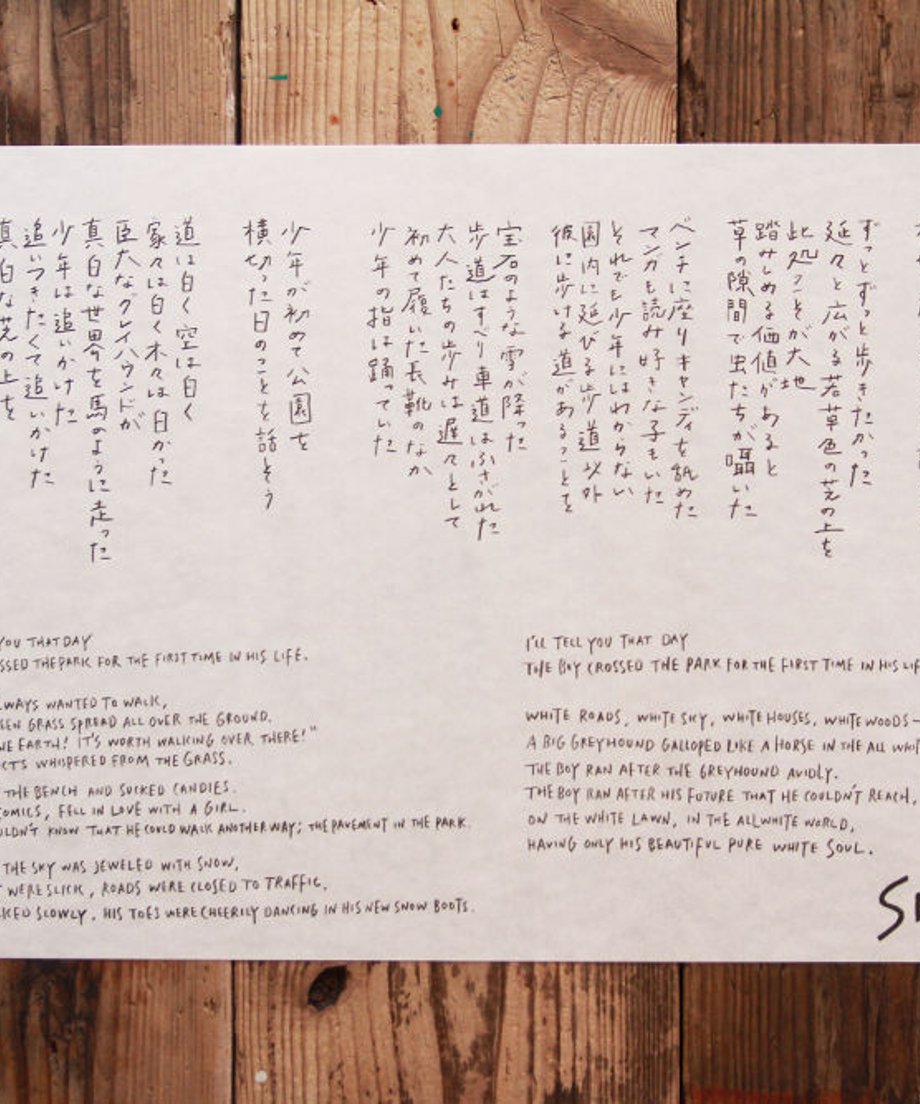 ずっとずっと歩きたかった
延々と広がる若草色の芝の上を
此処こそが大地
踏みしめる価値があると
草の隙間で虫たちが囁いた
ベンチに座りキャンディを舐めた
マンガも読み好きな子もいた
それでも少年にはわからない
園内に延びる歩道以外
彼に歩ける道があることを
宝石のような雪が降った
歩道はすべり車道はふさがれた
大人たちの歩みは遅々として
初めて履いた長靴のなか
少年の指は踊っていた
少年が初めて公園を
横切った日のことを話そう
道は白く空は白く
家々は白く木々は白かった
巨大なグレイハウンドが
真白な世界を馬のように走った
少年は追いかけた
追いつきたくて追いかけた
真白な芝の上を
YOU THAT DAY
SSED THE PARK FOR THE FIRST TIME IN HIS LIFE.
LWAYS WANTED TO WALK,
EEN GRASS SPREAD ALL OVER THE GROUND.
NE EARTH! IT'S WORTH WALKING OVER THERE!"
CTS WHISPERED FROM THE GRASS.
THE BENCH AND SUCKED CANDIES.
OMICS, FELL IN LOVE WITH A GIRL.
ULDN'T KNOW THAT HE COULD WALK ANOTHER WAY; THE PAVEMENT IN THE PARK.
THE SKY WAS JEWELED WITH SNOW,
T WERE SLICK, ROADS WERE CLOSED TO TRAFFIC,
KED SLOWLY, HIS TOES WERE CHEERILY DANCING IN HIS NEW SNOW BOOTS.
I'LL TELL YOU THAT DAY
THE BOY CROSSED THE PARK FOR THE FIRST TIME IN HIS LIF
WHITE ROADS, WHITE SKY, WHITE HOUSES, WHITE WOODS-
A BIG GREYHOUND GALLOPED LIKE A HORSE IN THE ALL WHIT
THE BOY RAN AFTER THE GREYHOUND AVIDLY.
THE BOY RAN AFTER HIS FUTURE THAT HE COULDN'T REACH,
ON THE WHITE LAWN, IN THE ALLWHITE WORLD,
HAVING ONLY HIS BEAUTIFUL PURE WHITE SOUL.